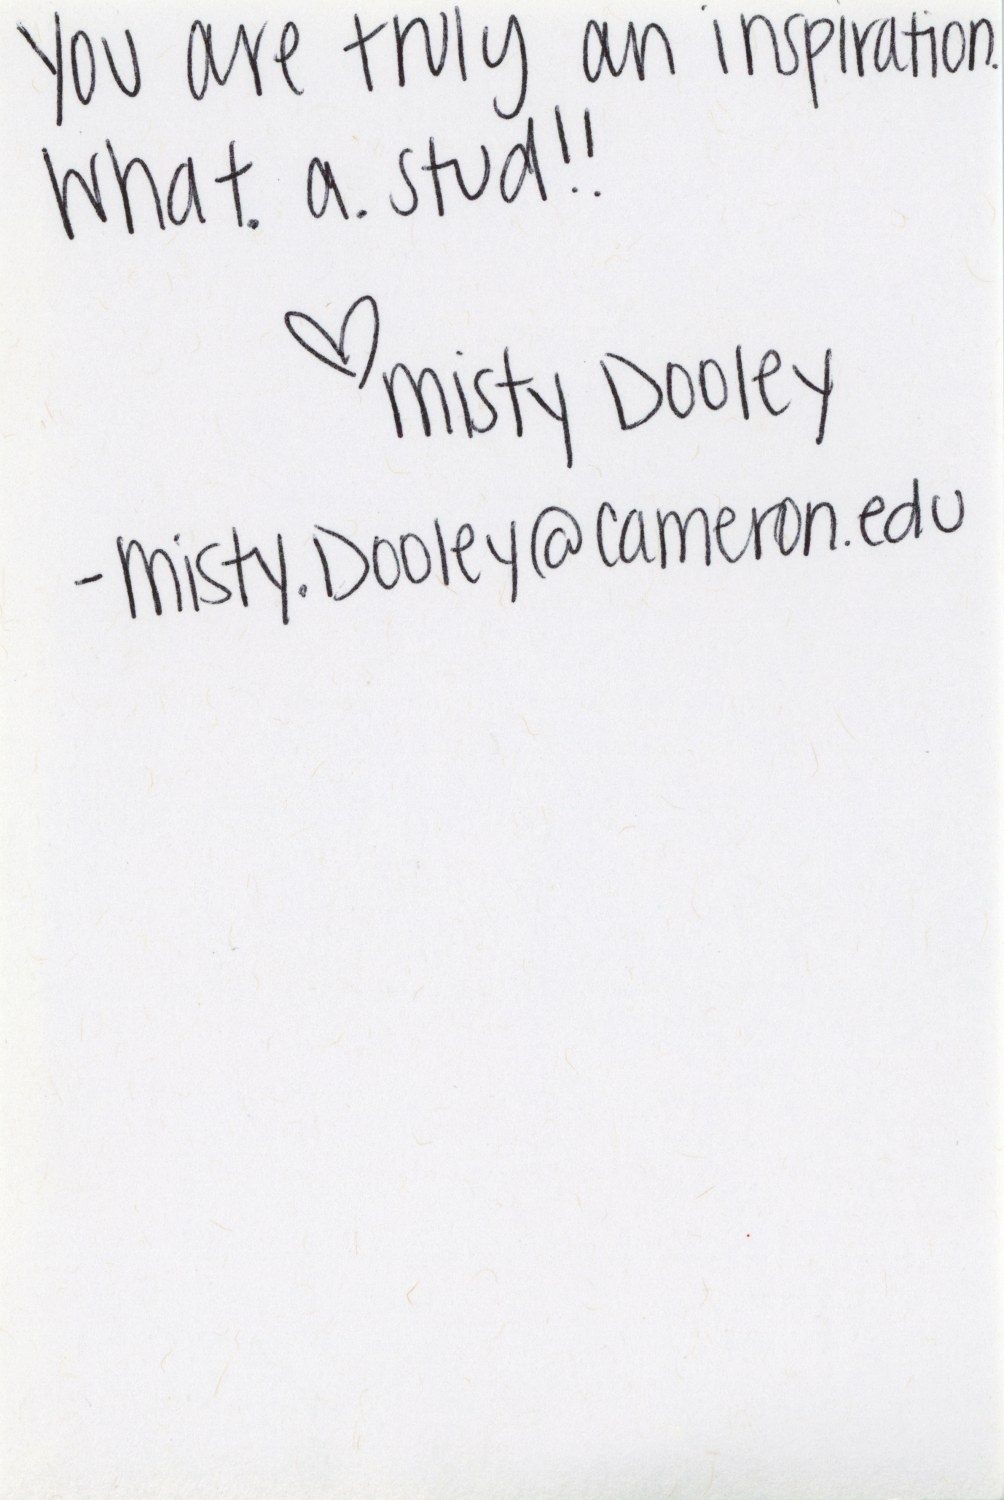 You are truly an inspiration.
What. a. stud!!
♡ Misty Dooley
- Misty.Dooley@cameron.edu